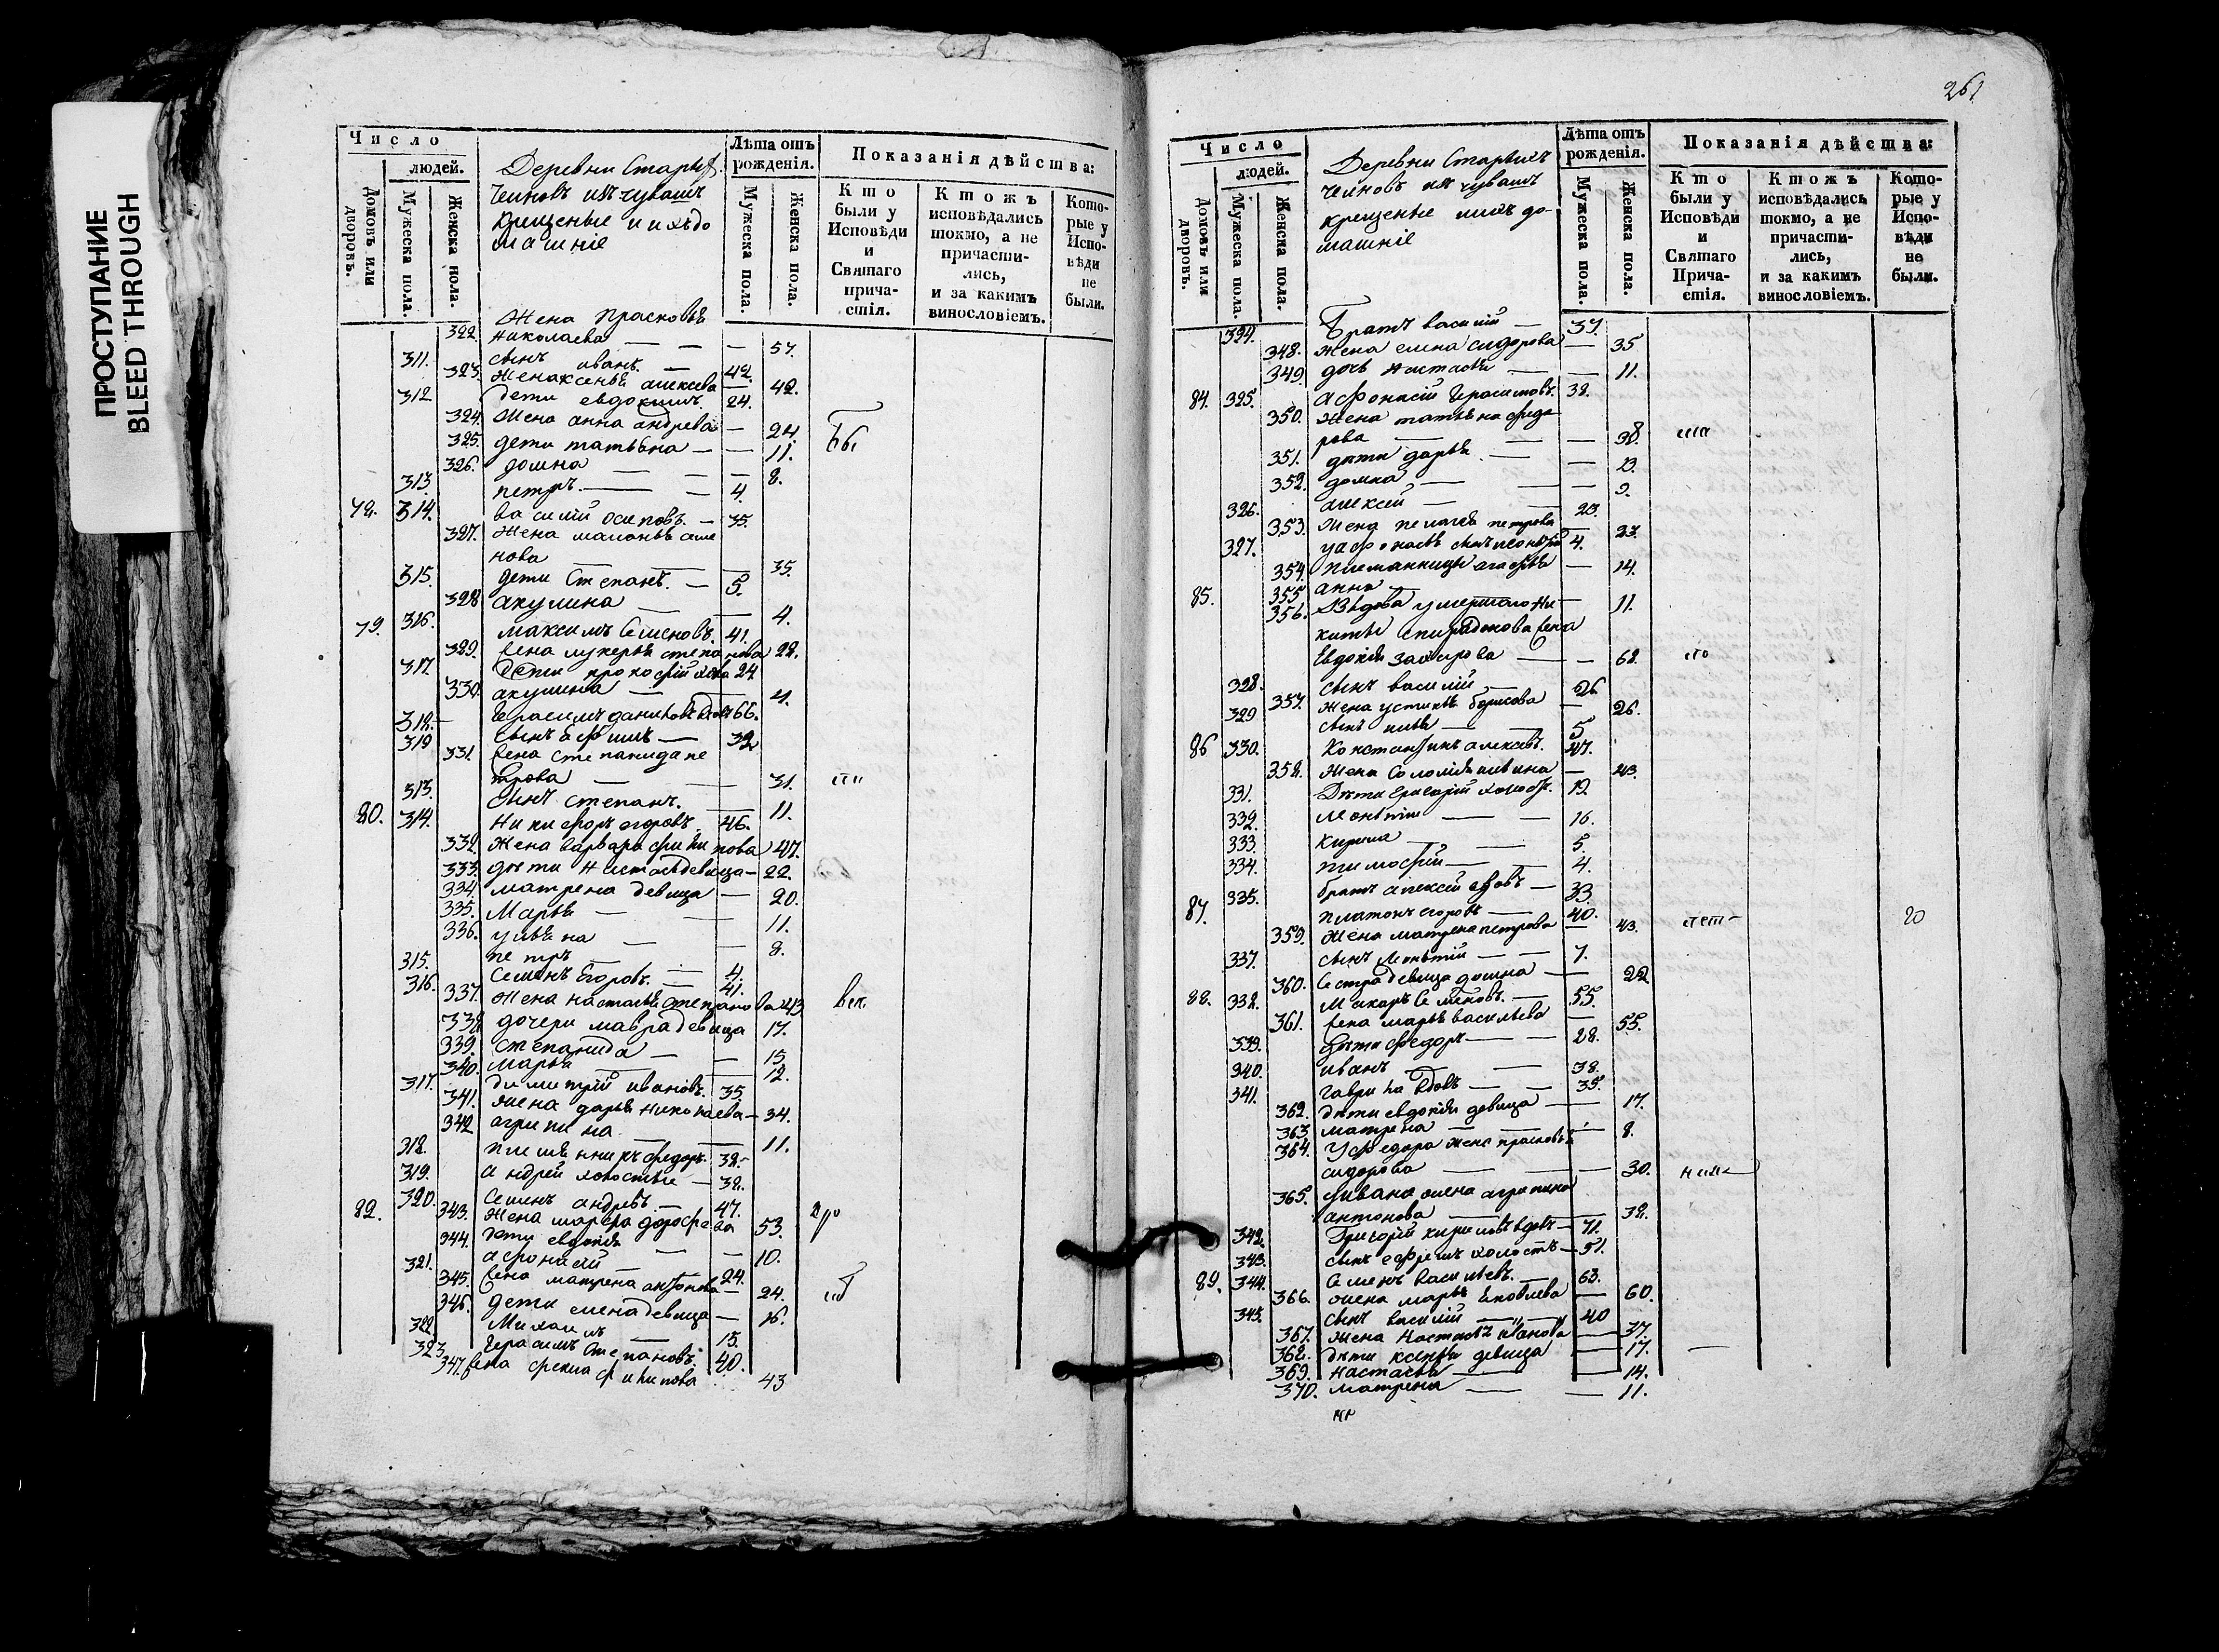 ПРОСТУПАНИЕ
BLEED THROUGH
Число
людей.
Домовъ или дворовъ.
Мужеска пола.
Женска пола.
Деревни Старых
Чениовъ изъ чувашъ
крещеные и ихъ до
машніе
Лѣта отъ рожденія.
Мужеска пола.
Женска пола.
Показанія дѣйства:
Кто были у Исповѣди и Святаго прича-стія.
Ктожъ исповѣдались токмо, а не причасти-лись, и за какимъ винословіемъ.
Кото-рые у Испо-вѣди не были.
322. Жена Прасковья
Николаева — — — 57.
311. сынъ иванъ. — 42.
323. Жена ксенья алексеева — 42.
312 дети евдокимъ. 24.
324. Жена анна андрева — 24
325. дети татьяна — — 11.
326. домна — — — 8.
313. петръ. — — 4.
78. 314. василій осиповъ. — 35.
327. Жена маланья семе
нова — — — 35.
315. дети Степанъ. — 5.
328 акулина — — 4.
79. 316. максимъ Семеновъ. 41.
329. жена лукерья степанова 22.
317. дети прокофій 24
330. акулина — — 4.
318. — Герасимъ даниловъ вдовъ 66.
319 сынъ ефимъ — 32
331. жена степанида пе
трова — — 31.
313. сынъ степанъ. — 11.
80. 314. Никифоръ егоровъ. 46.
332. Жена варвара филипова 47.
333. дѣти Настасья девица — 22.
334. матрена девица — 20.
335. Марья — — 11.
336. ульяна — — 8.
315. петръ — — 4.
316. Семенъ Егоровъ. — 41.
337. Жена настасья степанова 43
338. дочери мавра девица 17.
339. степанида — — 15
340. марья — — 12.
317. димитрій ивановъ. 35.
341. Жена дарья николаева — 34.
342 агрипина — — 11.
318. племянникъ федоръ. 38. —
319. андрей холостые — 32.
82. 320. Семенъ андревъ. — 47.
343. Жена марфа дорофева 53.
344. дети евдокия — — 10.
321. афонасій — 24.
345. жена матрена антонова — 24.
346. дети елена девица — 16.
322 Михаилъ — 15.
323. Герасимъ Степановъ. 40.
347. жена фекла филипова 43
261
Число
людей.
Домовъ или дворовъ.
Мужеска пола.
Женска пола.
Деревни Старыхъ
Чениовъ изъ чувашъ
крещеные и ихъ до-
машніе
Лѣта отъ рожденія.
Мужеска пола.
Женска пола.
Показанія дѣйства:
Кто были у Исповѣди и Святаго Прича-стія.
Ктожъ исповѣдались токмо, а не причасти-лись, и за какимъ винословіемъ.
Кото-рые у Испо-вѣди не были.
324. Братъ василій — 37.
348. Жена елена сидорова — 35
349. дочь настасья — — 11.
84. 325. Афонасій Герасимовъ. 38.
350. Жена татьяна федо
рова — — — 38.
351. дѣти дарья. — —
352. домна — — —
326. алексей — — 23.
353. Жена пелагея петрова — 23.
327. у афонасья сынъ леонтій 4.
354. племянницы агафья — 14.
85. 355 анна —
356. Вдова умершаго Ни — 11.
киты спиридонова жена
Евдокия захарова — — 62.
328. сынъ василій — 26
357. Жена устинья борисова — 26.
329 сынъ илья — — 5
86 330. Константинъ алексевъ. 47.
358. Жена Соломія илвина — 43.
331. Дѣти григорій холосъ. 19.
332. Леонтии — — 16.
333. Кирила — — 5.
334. тимофей — — 4.
335. братъ алексей — 33.
87. платонъ егоровъ — 40.
359. Жена матрена петрова — 43.
337. сынъ леонтій — — 7.
360. Сестра девица домна — 22
88. 338. Макаръ Семеновъ. — 55.
361. жена марья васильева — 55.
339. дѣти федоръ — — 28.
340. иванъ — — 38.
341. гаврила вдовъ — — 35.
362. дѣти евдокия девица — 17.
363 матрена — — — 8.
364. У федора жена прасковья
сидорова — — — 30.
365. у ивана жена агрипина
антонова — — — 32.
342. Григорій кириловъ вдовъ — 71.
343. сынъ ефремъ холостъ — 51.
89. 344. Семенъ васильевъ. — 63.
366. жена марья Яковлева — 60.
345. сынъ василій — „ — „ 40
367. жена Настасья иванова — 37.
368. дѣти ксенья девица — 17.
369. настасья — — 14.
370. матрена — — 11.